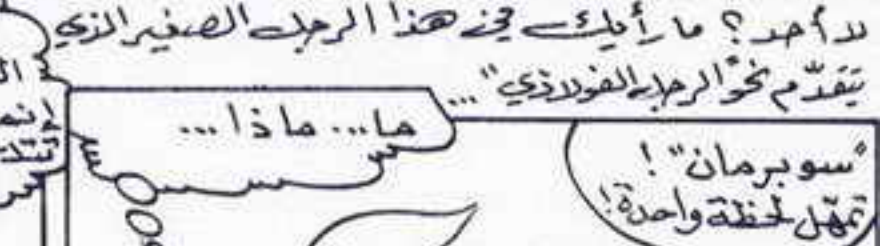 لا أحد؟ ما رأيك في هذا الرجل الصغير الذي
يتقدّم نحو "الرجل الفولاذي"...
"سوبرمان"!
تمهّل لحظة واحدة!
ما... ماذا...